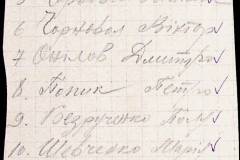 6 Чорновол Віктор
7 Дмитро
8. Попик Петро
9. Безрученко
10. Шевченко Марія